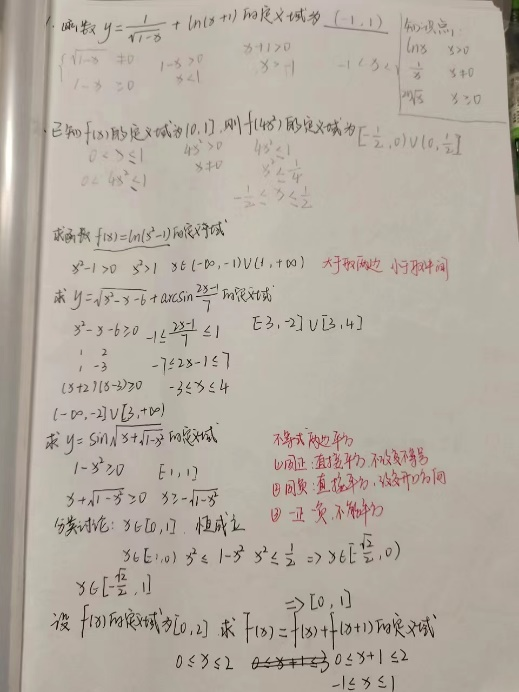 1. 函数 y = 1/√(1-x) + ln(x+1) 的定义域为 (-1,1)
知识点:
lnx x>0
1/x x≠0
2n√x x≥0
√(1-x) ≠0 1-x>0 x+1>0
1-x≥0 x<1 x>-1 -1<x<1
已知f(x)的定义域为(0,1],则f(4x²)的定义域为 [-1/2,0)∪(0,1/2]
0<x≤1 4x²>0 4x²≤1
0<4x²≤1 x≠0 x²≤1/4
-1/2≤x≤1/2
求函数 f(x)=ln(x²-1)的定义域
x²-1>0 x²>1 x∈(-∞,-1)∪(1,+∞) 大于取两边 小于取中间
求 y=√(x²-x-6)+arcsin (2x-1)/7 的定义域
x²-x-6≥0 -1≤(2x-1)/7≤1 [-3,-2]∪[3,4]
1 2
1 -3 -7≤2x-1≤7
(x+2)(x-3)≥0 -3≤x≤4
(-∞,-2]∪[3,+∞)
求 y=sin√(x+√(1-x²)) 的定义域
1-x²≥0 [-1,1]
x+√(1-x²)≥0 x≥-√(1-x²)
不等式两边平方
①同正:直接平方,不改变不等号
②同负:直接平方,改变开口方向
③一正一负,不能平方
分类讨论: x∈[0,1] 恒成立
x∈[-1,0) x²≤1-x² x²≤1/2 => x∈[-√2/2,0)
x∈[-√2/2,1]
=> [0,1]
设 f(x)的定义域为[0,2] 求 F(x)=f(x)+f(x+1)的定义域
0≤x≤2 0≤x+1≤2
-1≤x≤1